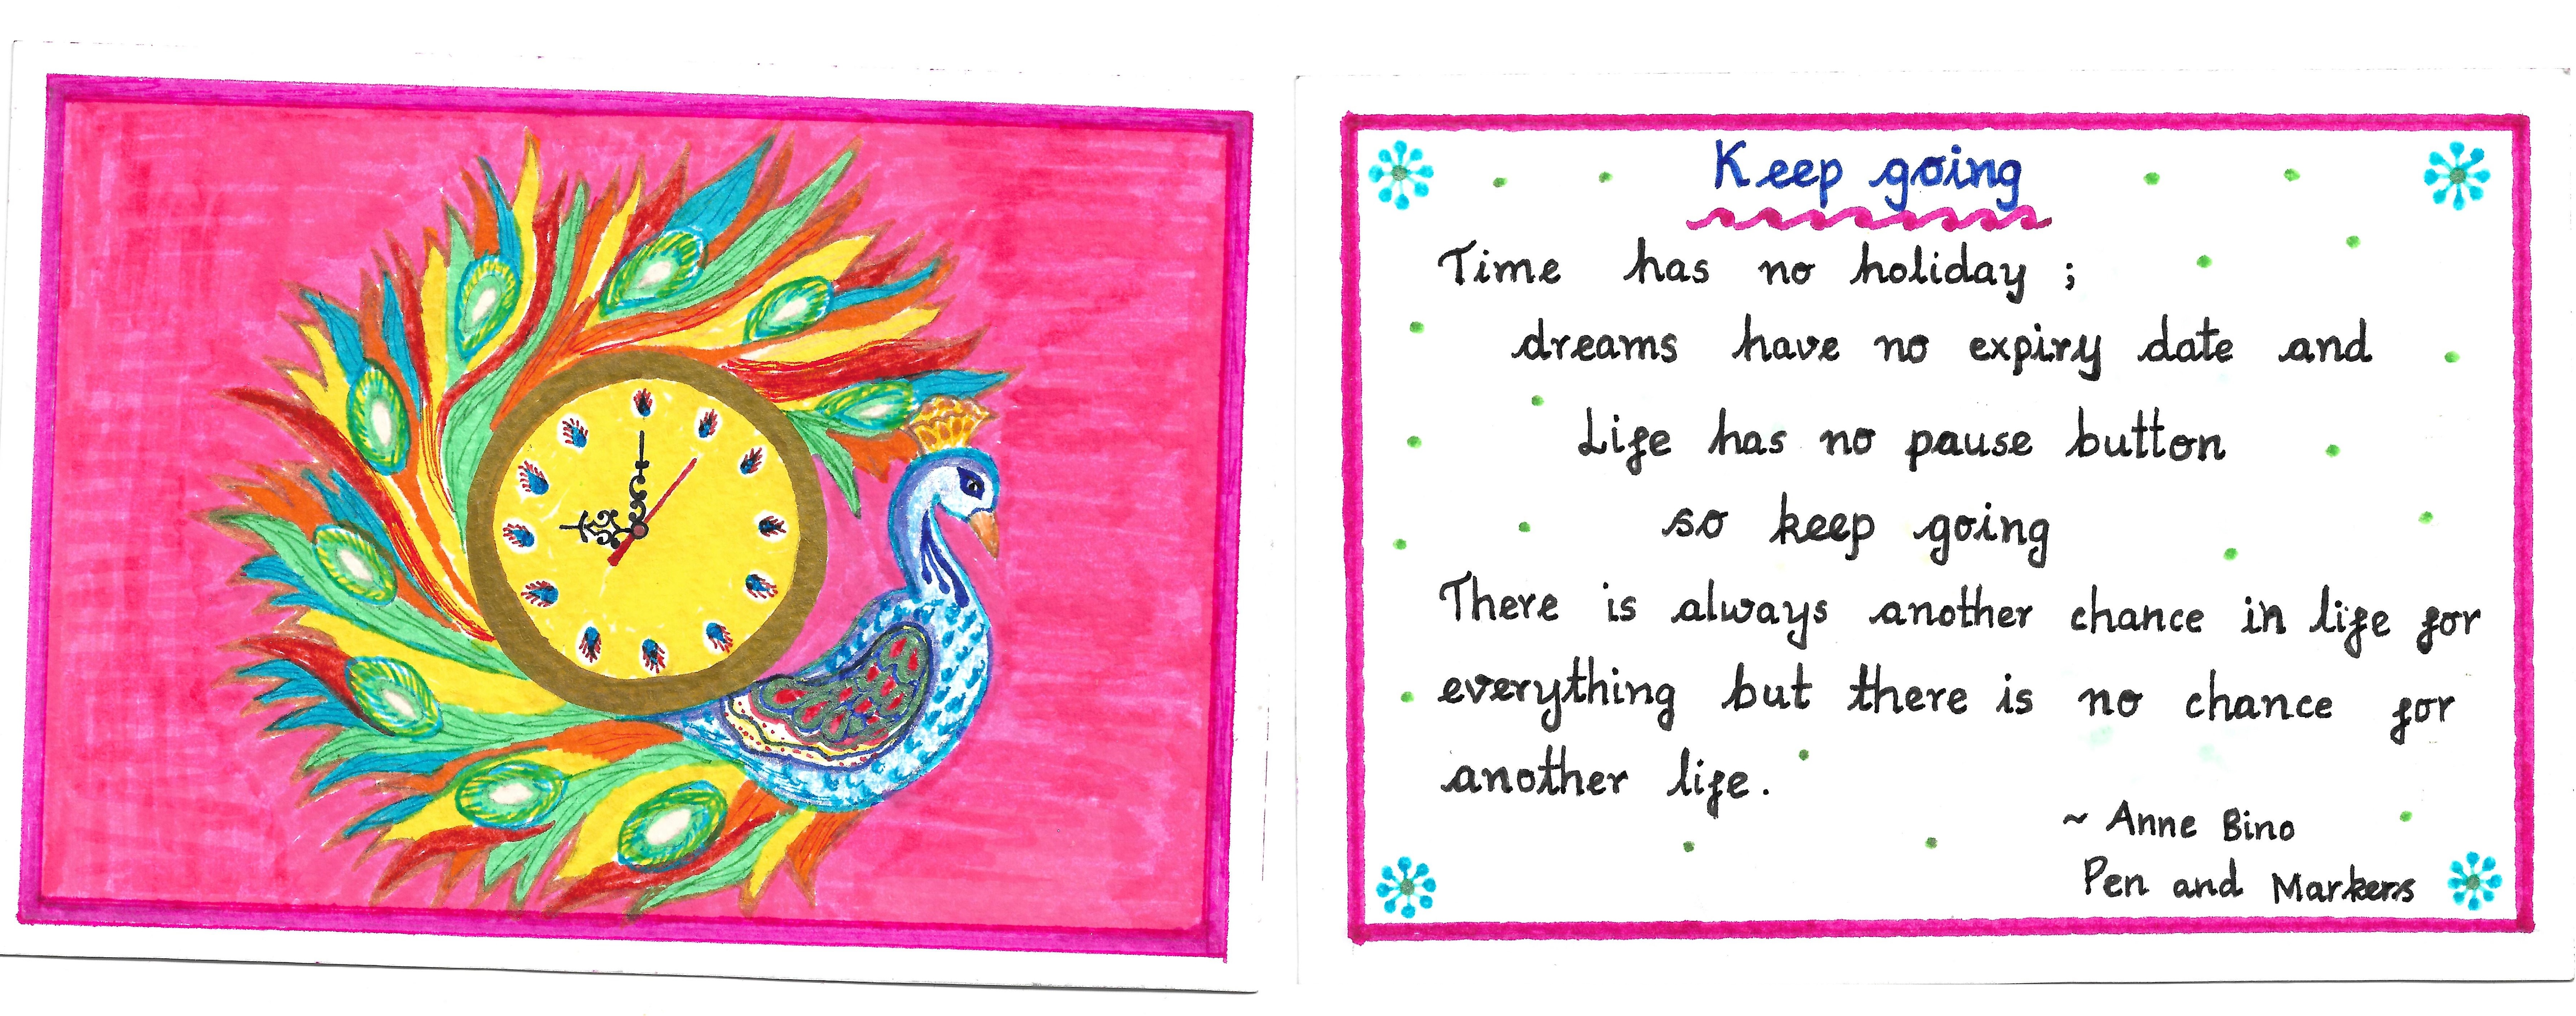 Keep going
Time has no holiday ;
dreams have no expiry date and
Life has no pause button
so keep going
There is always another chance in life for
everything but there is no chance for
another life.
~ Anne Bino
Pen and Markers